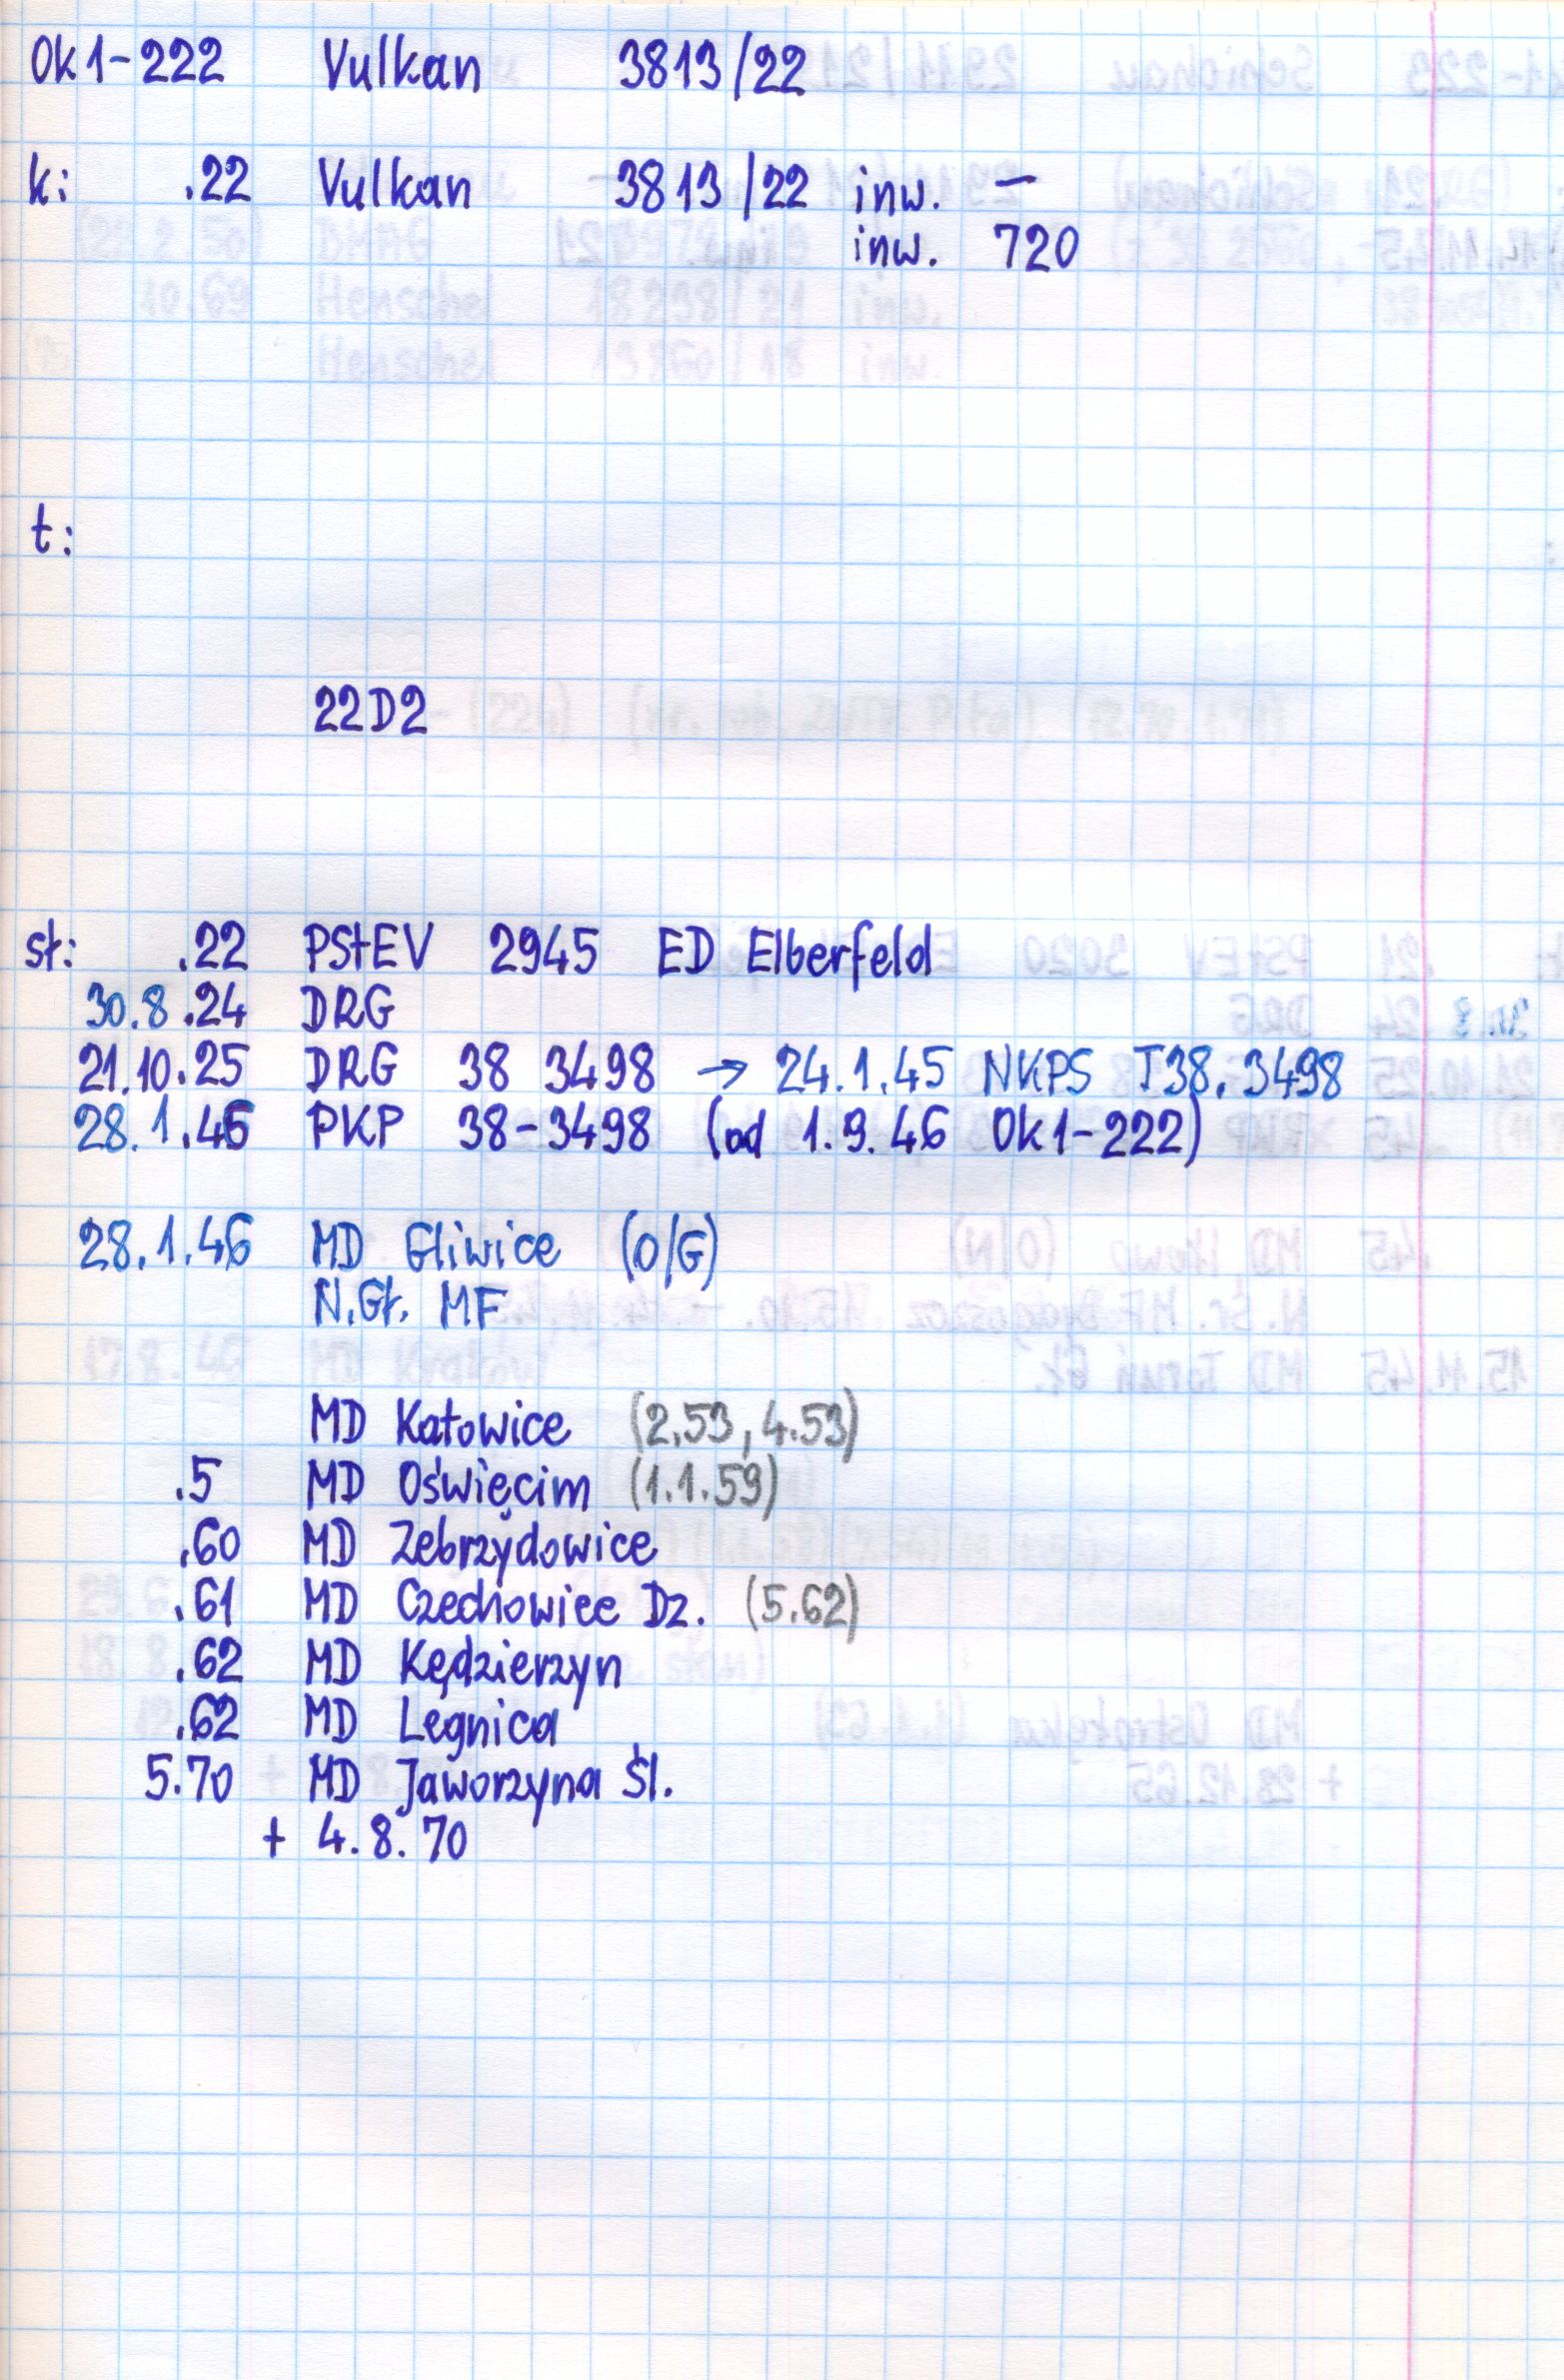 Ok1-222 Vulkan 3813/22
k: .22 Vulkan 3813/22 inw. –
inw. 720
t:
22D2
sł: .22 PStEV 2945 ED Elberfeld
30.8.24 DRG
21.10.25 DRG 38 3498 → 24.1.45 NKPS T38.3498
28.1.46 PKP 38-3498 (od 1.9.46 Ok1-222)
28.1.46 MD Gliwice (O/G)
N.Gł. MF
MD Katowice (2.53, 4.53)
.5 MD Oświęcim (1.1.59)
.60 MD Zebrzydowice
.61 MD Czechowice Dz. (5.62)
.62 MD Kędzierzyn
.62 MD Legnica
5.70 MD Jaworzyna Śl.
+ 4.8.70